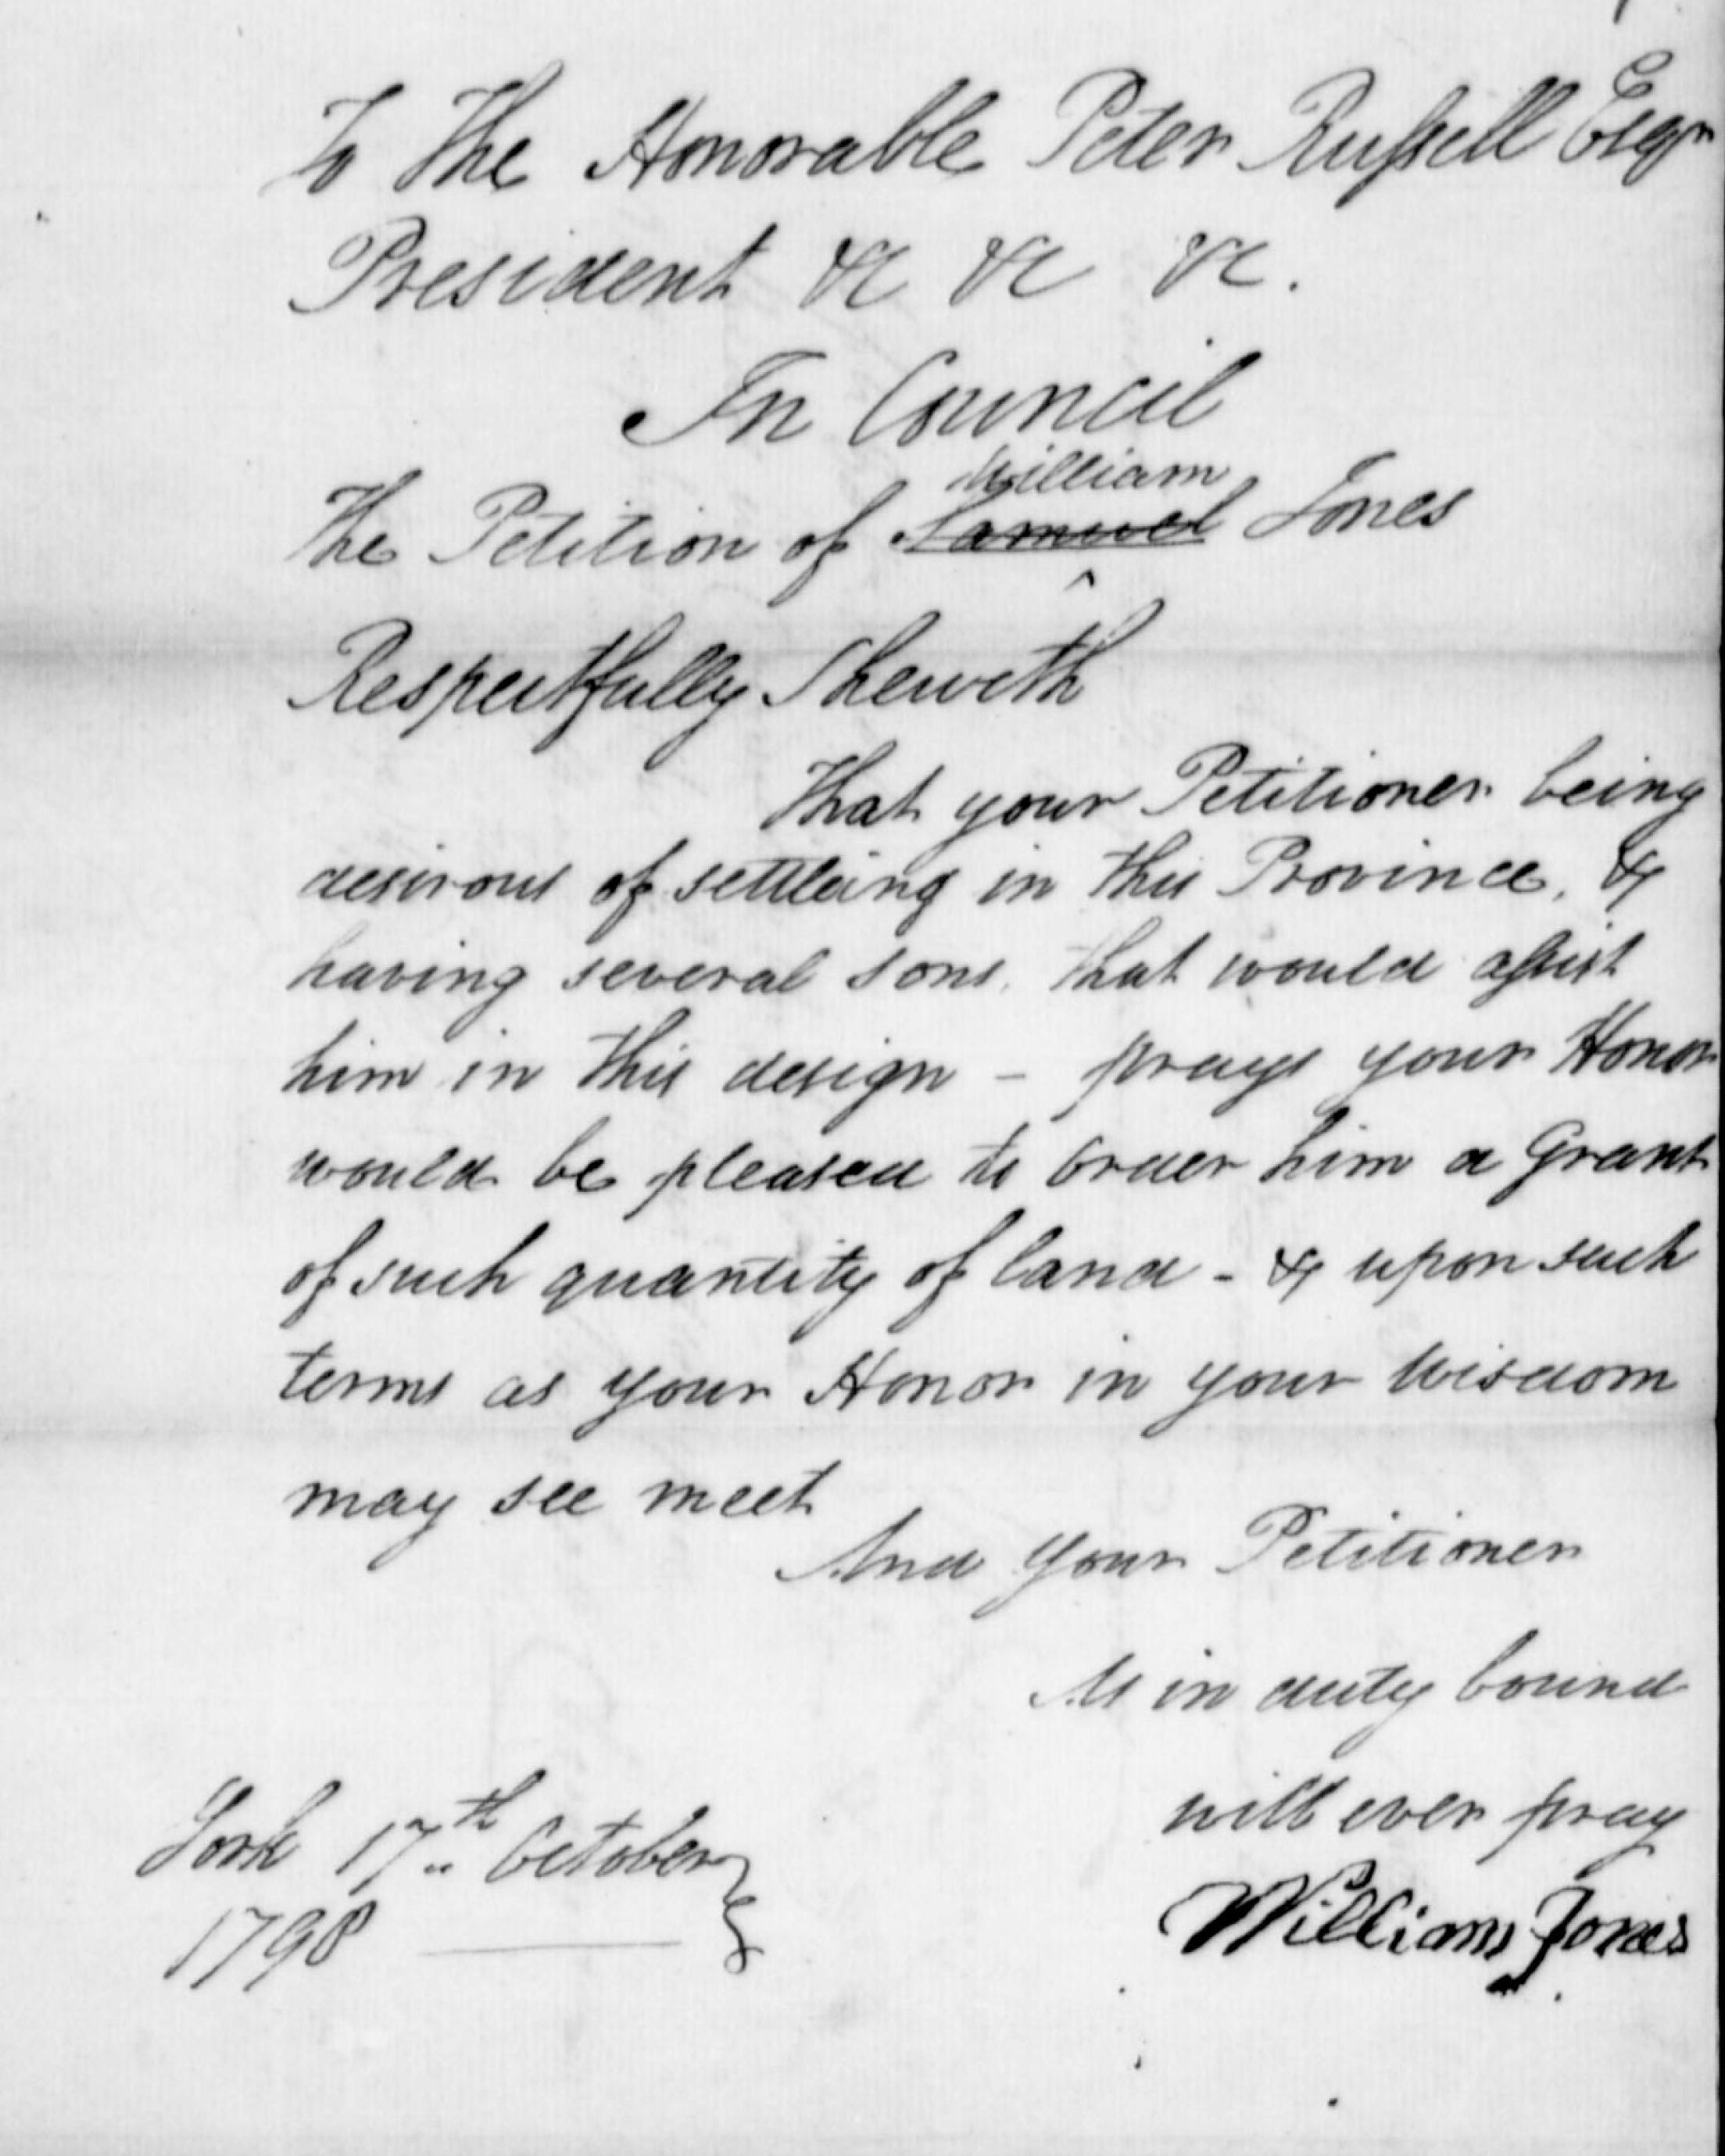 To The Honorable Peter Russell Esqr
President &c &c &c.
In Council
William
The Petition of Samuel Jones
^
Respectfully Sheweth
That your Petitioner being
desirous of settleing in this Province, &
having several sons, that would assist
him in this design - prays your Honor
would be pleased to Order him a Grant
of such quantity of land - & upon such
terms as your Honor in your Wisdom
may see meet
And Your Petitioner
As in duty bound
will ever pray
York 17th October
1798
William Jones